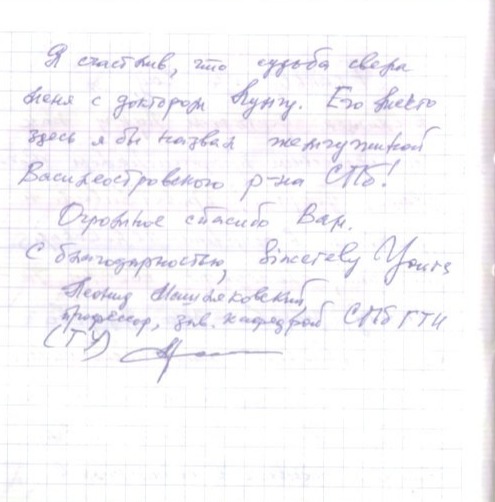 Я счастлив, что судьба свела
меня с доктором Кунгу. Его место
здесь я бы назвал жемчужиной
Василеостровского р-на СПб!
Огромное спасибо Вам.
С благодарностью, Sincerely Yours
Леонид
профессор, зав. кафедрой СПбГТИ
(ТУ)